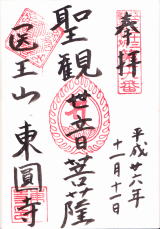 奉拝
平成廿六年
十一月十二日
聖観世音菩薩
医王山 東圓寺